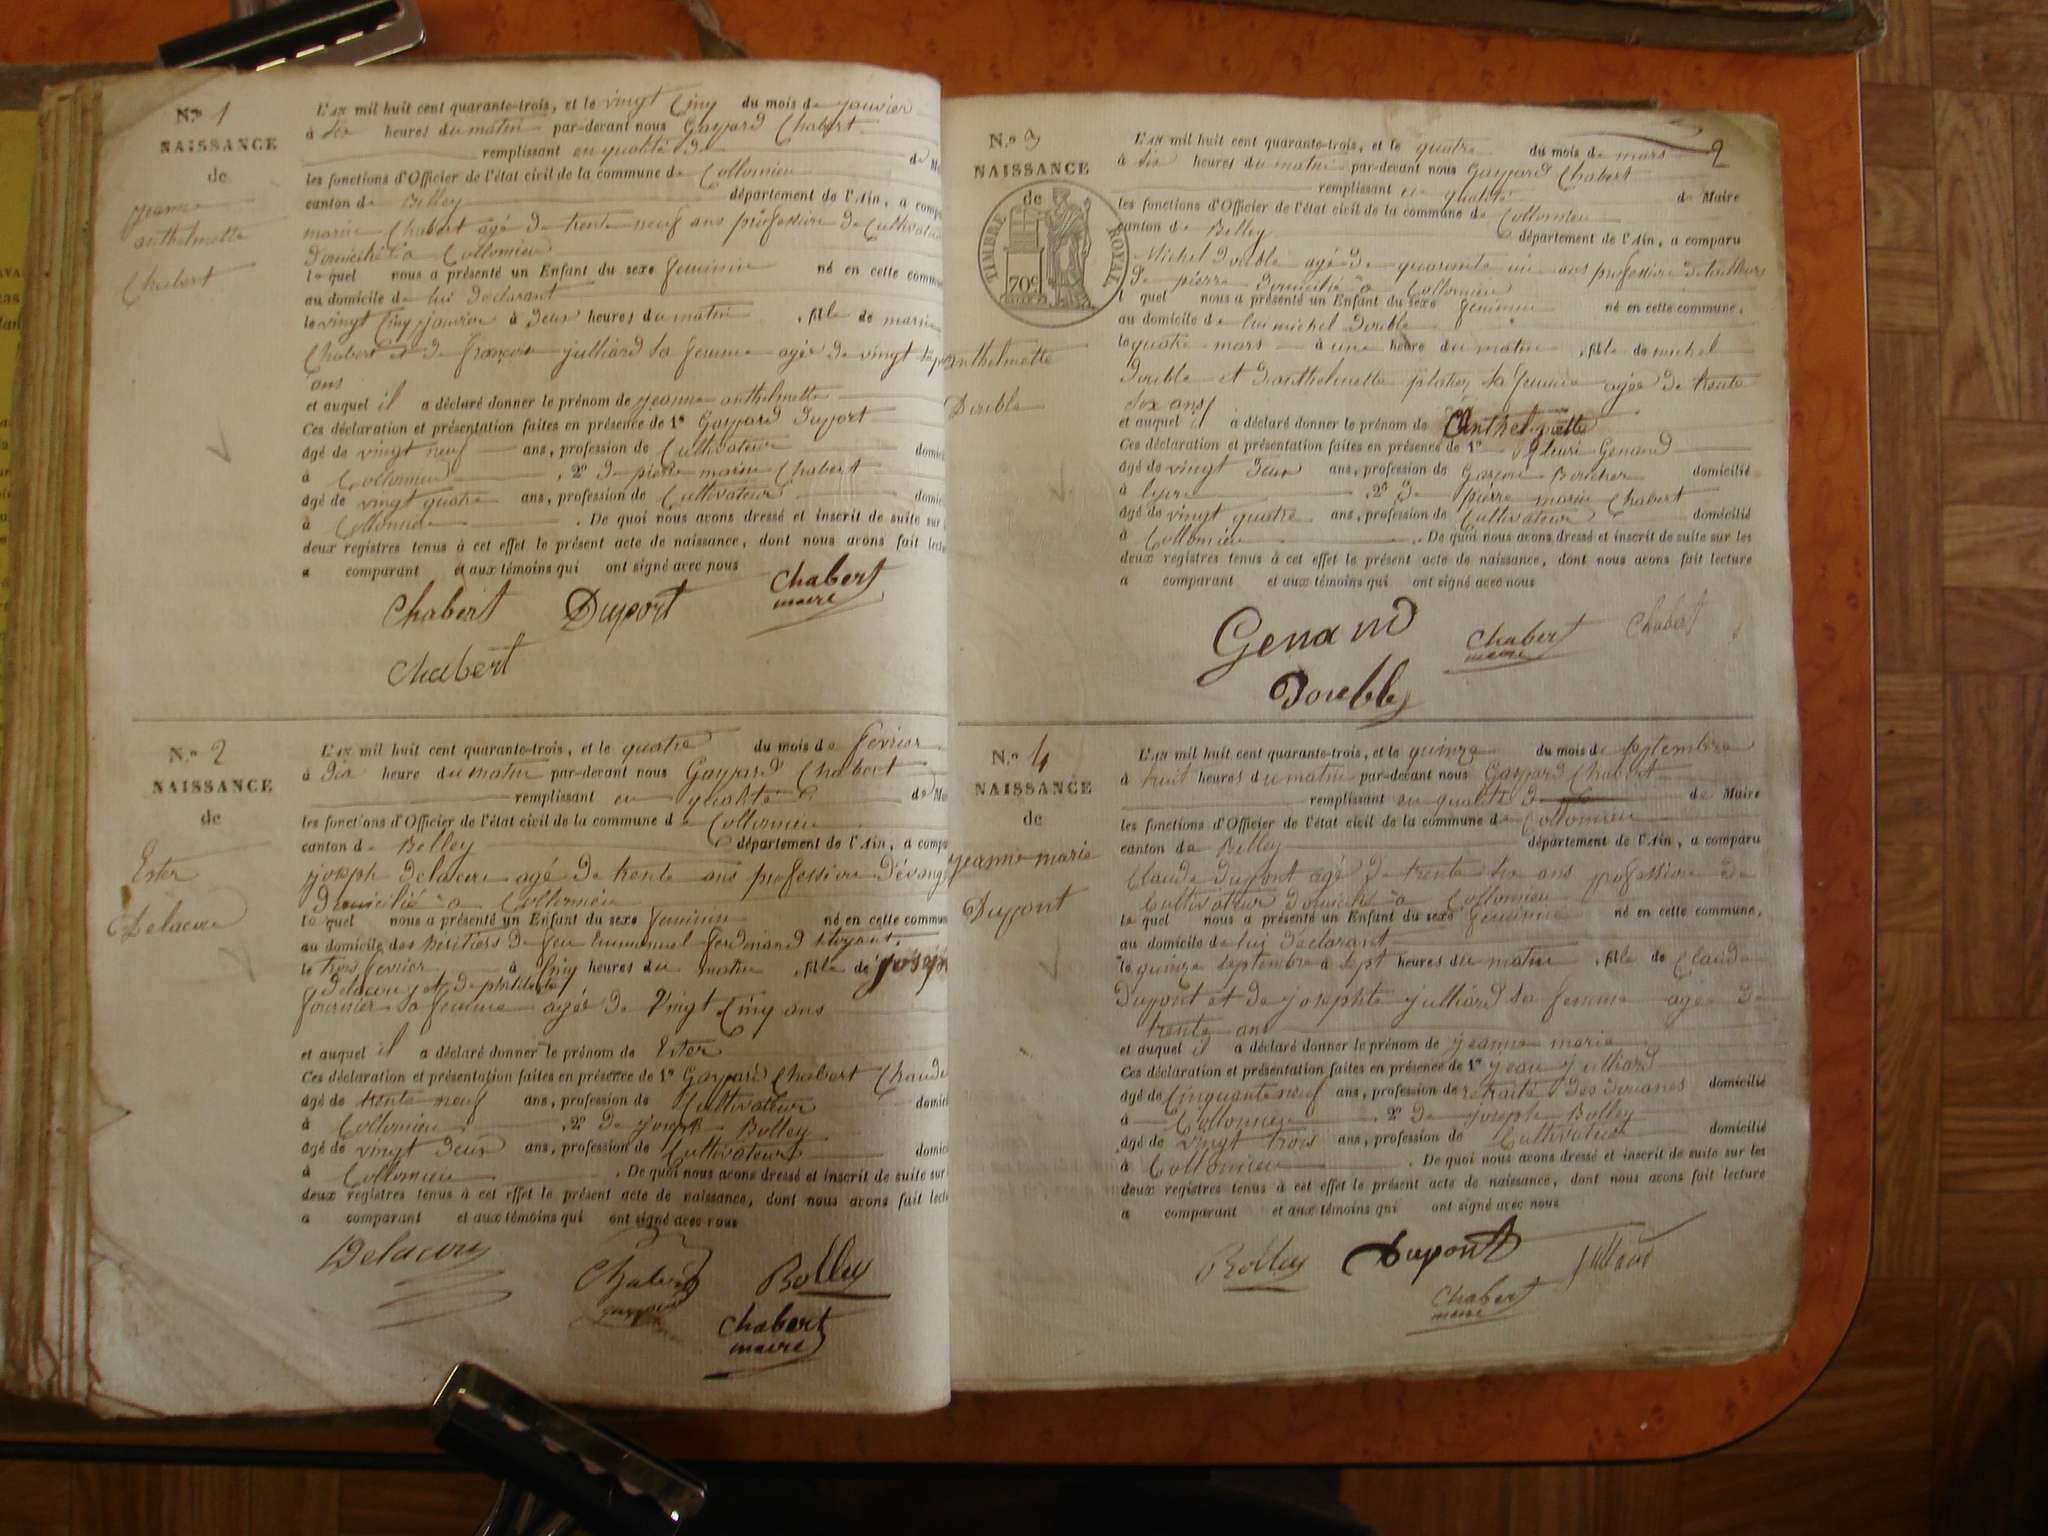 N.º 1
NAISSANCE
de
jeanne
anthelmette
Chabert
L'AN mil huit cent quarante-trois, et le vingt Cinq du mois de janvier
à Six heures du matin par-devant nous Gaspard Chabert
remplissant en qualité de
les fonctions d'Officier de l'état civil de la commune de Collomieu
canton de Belley département de l'Ain, a compa
marin Chabert agé de trente neuf ans profession de Cultivateur
Domicilié a Collomieu
lequel nous a présenté un Enfant du sexe feminin né en cette commun
au domicile de lui Declarant
le vingt Cinq janvier à Deux heures du matin, fille de marin
Chabert et de françoise julliard sa femme agée de vingt sept
ans
et auquel il a déclaré donner le prénom de jeanne anthelmette
Ces déclaration et présentation faites en présence de 1º Gaspard Duport
âgé de vingt neuf ans, profession de Cultivateur domici
à Collomieu, 2º de pierre marin Chabert
âgé de vingt quatre ans, profession de Cultivateur domici
à Collomieu. De quoi nous avons dressé et inscrit de suite sur
deux registres tenus à cet effet le présent acte de naissance, dont nous avons fait lectu
a comparant et aux témoins qui ont signé avec nous
Chabert Duport Chabert
maire
Chabert
N.º 2
NAISSANCE
de
Ester
Delacou
L'AN mil huit cent quarante-trois, et le quatre du mois de fevrier
à dix heure du matin par-devant nous Gaspard Chabert
remplissant en qualité de
les fonctions d'Officier de l'état civil de la commune de Collomieu
canton de Belley département de l'Ain, a compa
joseph Delacou agé de trente ans profession D'évang
Domicilié a Collomieu
lequel nous a présenté un Enfant du sexe feminin né en cette commun
au domicile des heritiers de feu Emmanuel ferdinand
le trois fevrier à Cinq heures du matin, fille de joseph
Delacou et de
fournier sa femme agée de Vingt Cinq ans
et auquel il a déclaré donner le prénom de Ester
Ces déclaration et présentation faites en présence de 1º Gaspard Chabert
âgé de trente neuf ans, profession de Cultivateur domici
à Collomieu, 2º de joseph Bolley
âgé de vingt deux ans, profession de Cultivateur domici
à Collomieu. De quoi nous avons dressé et inscrit de suite sur
deux registres tenus à cet effet le présent acte de naissance, dont nous avons fait lectu
a comparant et aux témoins qui ont signé avec nous
Delacou Chabert Bolley
Chabert
maire
2
N.º 3
NAISSANCE
de
TIMBRE ROYAL
70c
anthelmette
Double
L'AN mil huit cent quarante-trois, et le quatre du mois de mars
à Six heures du matin par-devant nous Gaspard Chabert
remplissant en qualité de Maire
les fonctions d'Officier de l'état civil de la commune de Collomieu
canton de Belley
département de l'Ain, a comparu
Michel Double agé de quarante un ans profession de tailleur
De pierre Domicilié a Collomieu
l quel nous a présenté un Enfant du sexe feminin né en cette commune,
au domicile de lui michel Double
le quatre mars à une heure du matin, fille de michel
Double et D'anthelmette sa femme agée de trente
six ans
et auquel il a déclaré donner le prénom de Anthelmette
Ces déclaration et présentation faites en présence de 1º fleuri Genand
âgé de vingt Deux ans, profession de Garçon Boucher domicilié
à 2º de pierre marin Chabert
âgé de vingt quatre ans, profession de Cultivateur domicilié
à Collomieu. De quoi nous avons dressé et inscrit de suite sur les
deux registres tenus à cet effet le présent acte de naissance, dont nous avons fait lecture
a comparant et aux témoins qui ont signé avec nous
Genand Chabert Chabert
maire
Double
N.º 4
NAISSANCE
de
jeanne marie
Dupont
L'AN mil huit cent quarante-trois, et le quinze du mois de septembre
à huit heures du matin par-devant nous Gaspard Chabert
remplissant en qualité de de Maire
les fonctions d'Officier de l'état civil de la commune de Collomieu
canton de Belley département de l'Ain, a comparu
Claude Dupont agé De trente six ans profession de
Cultivateur Domicilié a Collomieu
lequel nous a présenté un Enfant du sexe feminin né en cette commune,
au domicile de lui Declarant
le quinze septembre à sept heures du matin, fille de Claude
Dupont et de josephte julliard sa femme agée de
trente ans
et auquel il a déclaré donner le prénom de jeanne marie
Ces déclaration et présentation faites en présence de 1º jean julliard
âgé de Cinquante neuf ans, profession de retraité des douanes domicilié
à Collomieu, 2º de joseph Bolley
âgé de vingt trois ans, profession de Cultivateur domicilié
à Collomieu. De quoi nous avons dressé et inscrit de suite sur les
deux registres tenus à cet effet le présent acte de naissance, dont nous avons fait lecture
a comparant et aux témoins qui ont signé avec nous
Bolley Dupont julliard
Chabert
maire